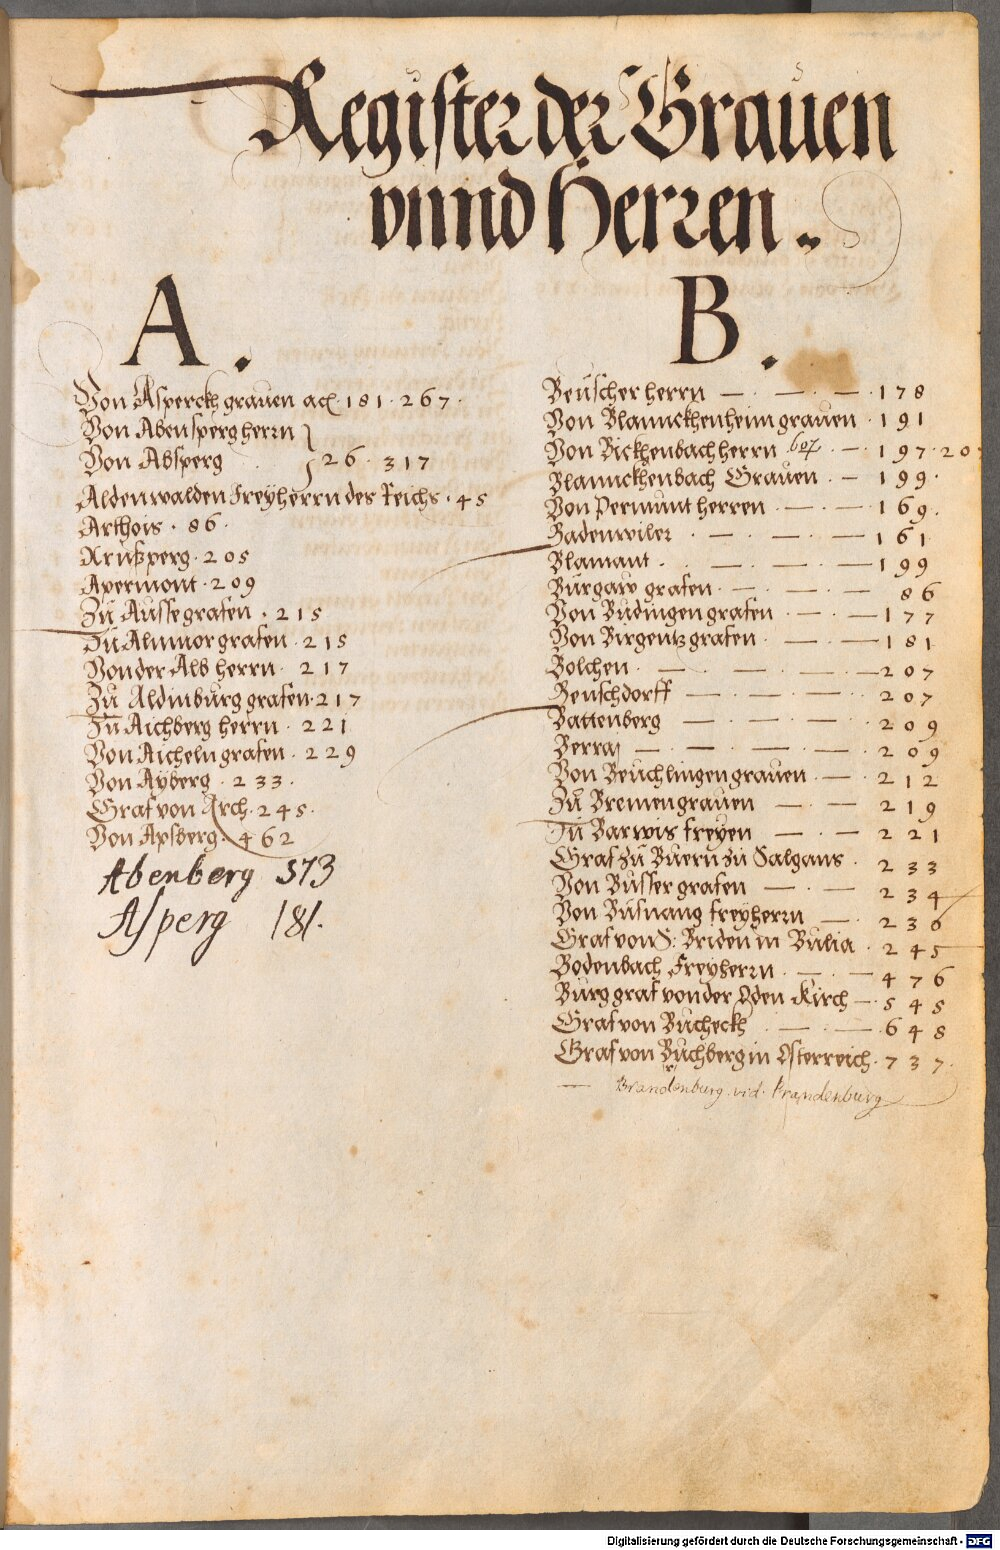 Register der Grauen
vnnd Herren.
A.
Von Asperckh grauen ad. 181. 267.
Von Abensperg herrn }
Von Absperg } 26. 317
Aldenwalden Freyherrn des Reichs. 45
Arthois. 86.
Arußperg. 205
Apermont. 209
Zů Ausse grafen. 215
Zů Alminor grafen. 215
Von der Alb herrn. 217
Zů Aldinburg grafen. 217
Zů Aichberg herrn. 221
Von Aicheln grafen. 229
Von Ayberg. 233.
Graf von Arch. 245.
Von Apsberg. 462
Abenberg 573
Asperg 181.
B.
Beüscher herrn — . — . — . 178
Von Blannckhenheim grauen. 191
Von Bickhenbach herrn 607. — . 197. 20
Blannckhenbach Grauen. — 199.
Von Permunt herren — . — 169.
Badenwiler . — . — . — 161
Blamant . — . — . — 199
Burgaw grafen . — . — . — 86
Von Budingen grafen — . — 177
Von Birgentz grafen . — . — 181
Bolchen . — . — . — . — 207
Benschdorff — . — . — . — 207
Battenberg — . — . — . — 209
Berra — . — . — . — 209
Von Beüchlingen grauen . — . 212
Zů Bremen grauen — . — . 219
Zů Barwis freyen — . — . 221
Graf zů Buern zu Salgans . 233
Von Busser grafen — . — 234
Von Büsnang freyherrn — . 236
Graf von S: Briden in Bulia . 245
Bodenbach Freyherrn . — . — 476
Burggraf von der Oden Kirch — . 545
Graf von Bucheckh . — . — . 648
Graf von Buchberg in Osterreich. 737.
— Brandenburg vid. Prandenburg
Digitalisierung gefördert durch die Deutsche Forschungsgemeinschaft - DFG